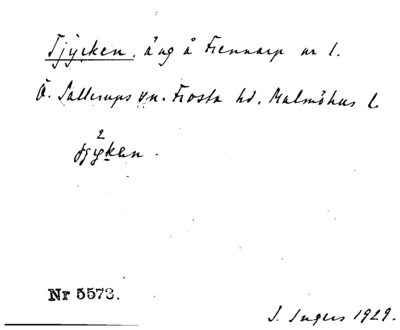 Tjycken, äng å Fennarp nr 1.
Ö. Sallerups sn. Frosta hd. Malmöhus l.
2
tjykan.
Nr 5573.
J. Ingers 1929.